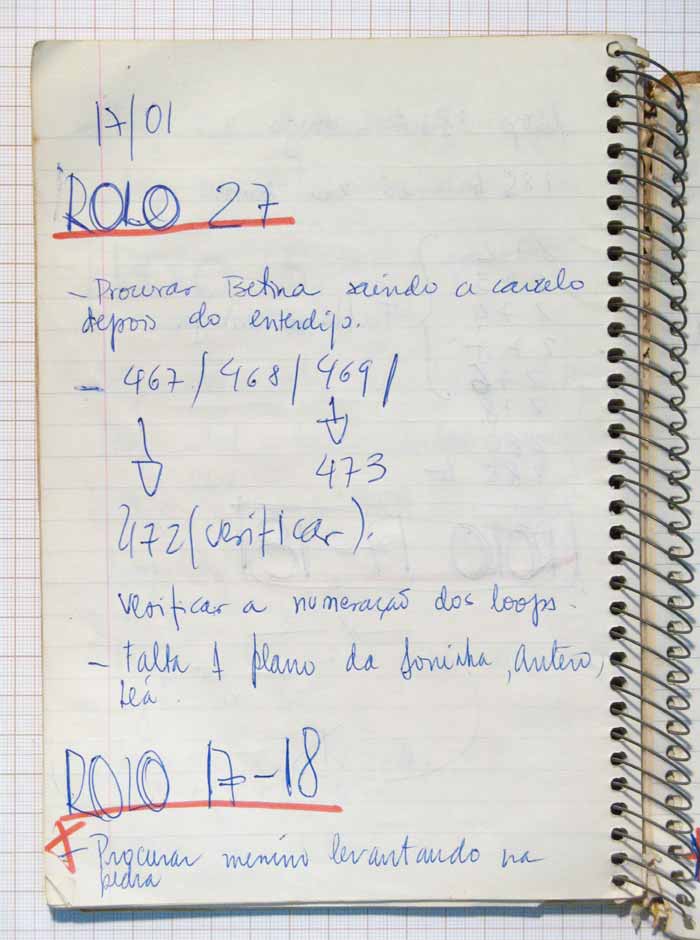 17/01
ROLO 27
- Procurar Betina saindo a cavalo
depois do enterdijo.
- 467 / 468 / 469 /
473
472 (verificar).
verificar a numeração dos loops.
- Falta 1 plano da Soninha, Antero,
Leá.
ROLO 17-18
- Procurar menino levantando na
pedra